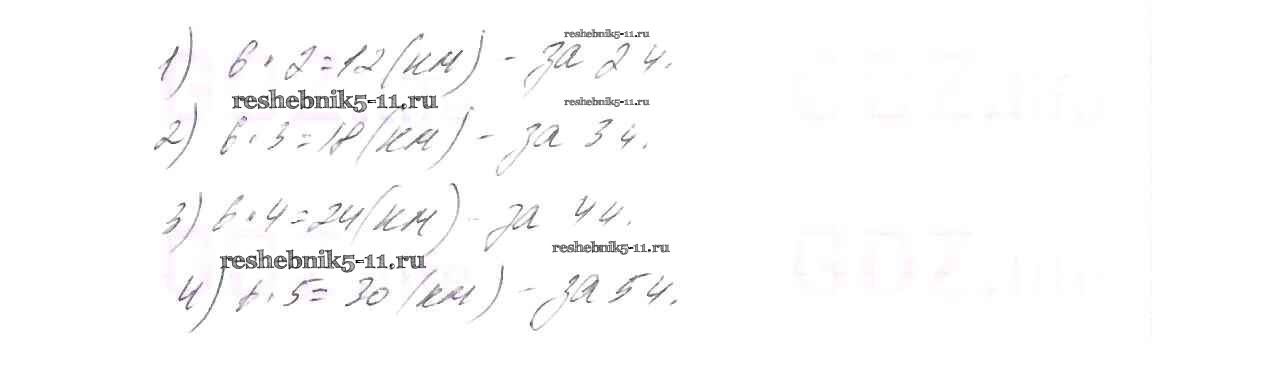 reshebnik5-11.ru
1) 6 · 2 = 12 (км) - за 2 ч.
reshebnik5-11.ru
reshebnik5-11.ru
2) 6 · 3 = 18 (км) - за 3 ч.
3) 6 · 4 = 24 (км) - за 4 ч.
reshebnik5-11.ru
reshebnik5-11.ru
4) 6 · 5 = 30 (км) - за 5 ч.